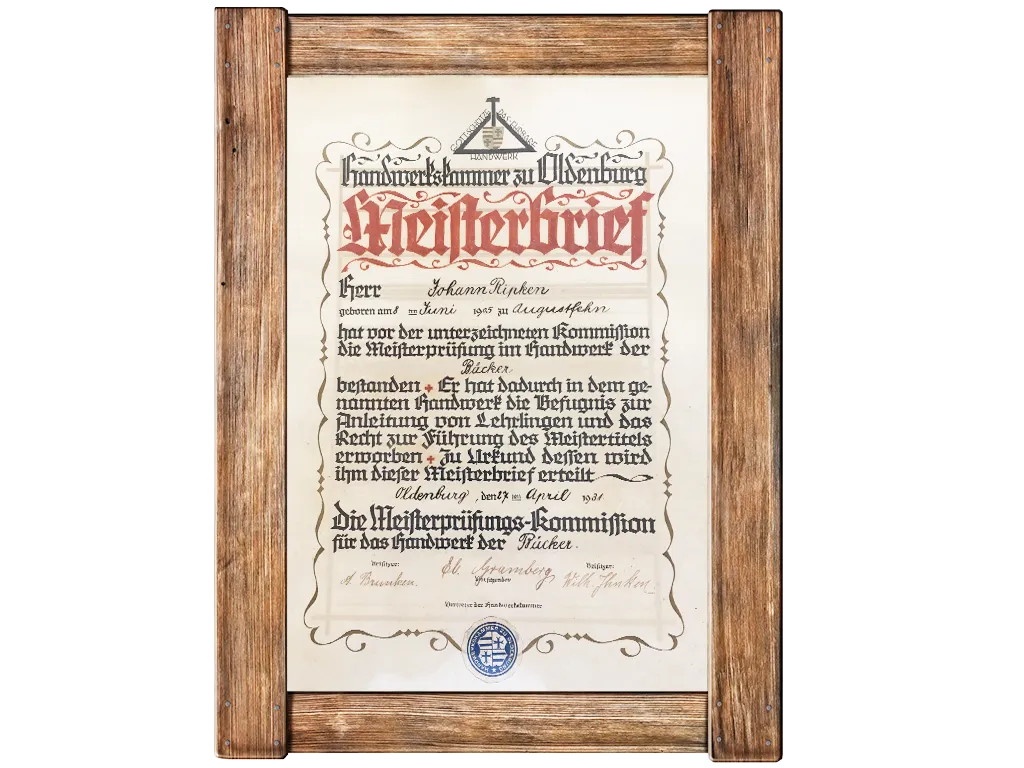 GOTT SCHÜTZE DAS EHRBARE
HANDWERK
Handwerkskammer zu Oldenburg
Meisterbrief
Herr Johann Ripken
geboren am 8 ten Juni 1905 zu Augustfehn
hat vor der unterzeichneten Kommission
die Meisterprüfung im Handwerk der
Bäcker
bestanden + Er hat dadurch in dem ge-
nannten Handwerk die Befugnis zur
Anleitung von Lehrlingen und das
Recht zur Führung des Meistertitels
erworben + Zu Urkund dessen wird
ihm dieser Meisterbrief erteilt
Oldenburg, den 27 ten April 1931
Die Meisterprüfungs-Kommission
für das Handwerk der Bäcker.
Beisitzer: Beisitzer:
Eb. Gramberg
A. Brunken. Vorsitzender Wilh.
Vertreter der Handwerkskammer